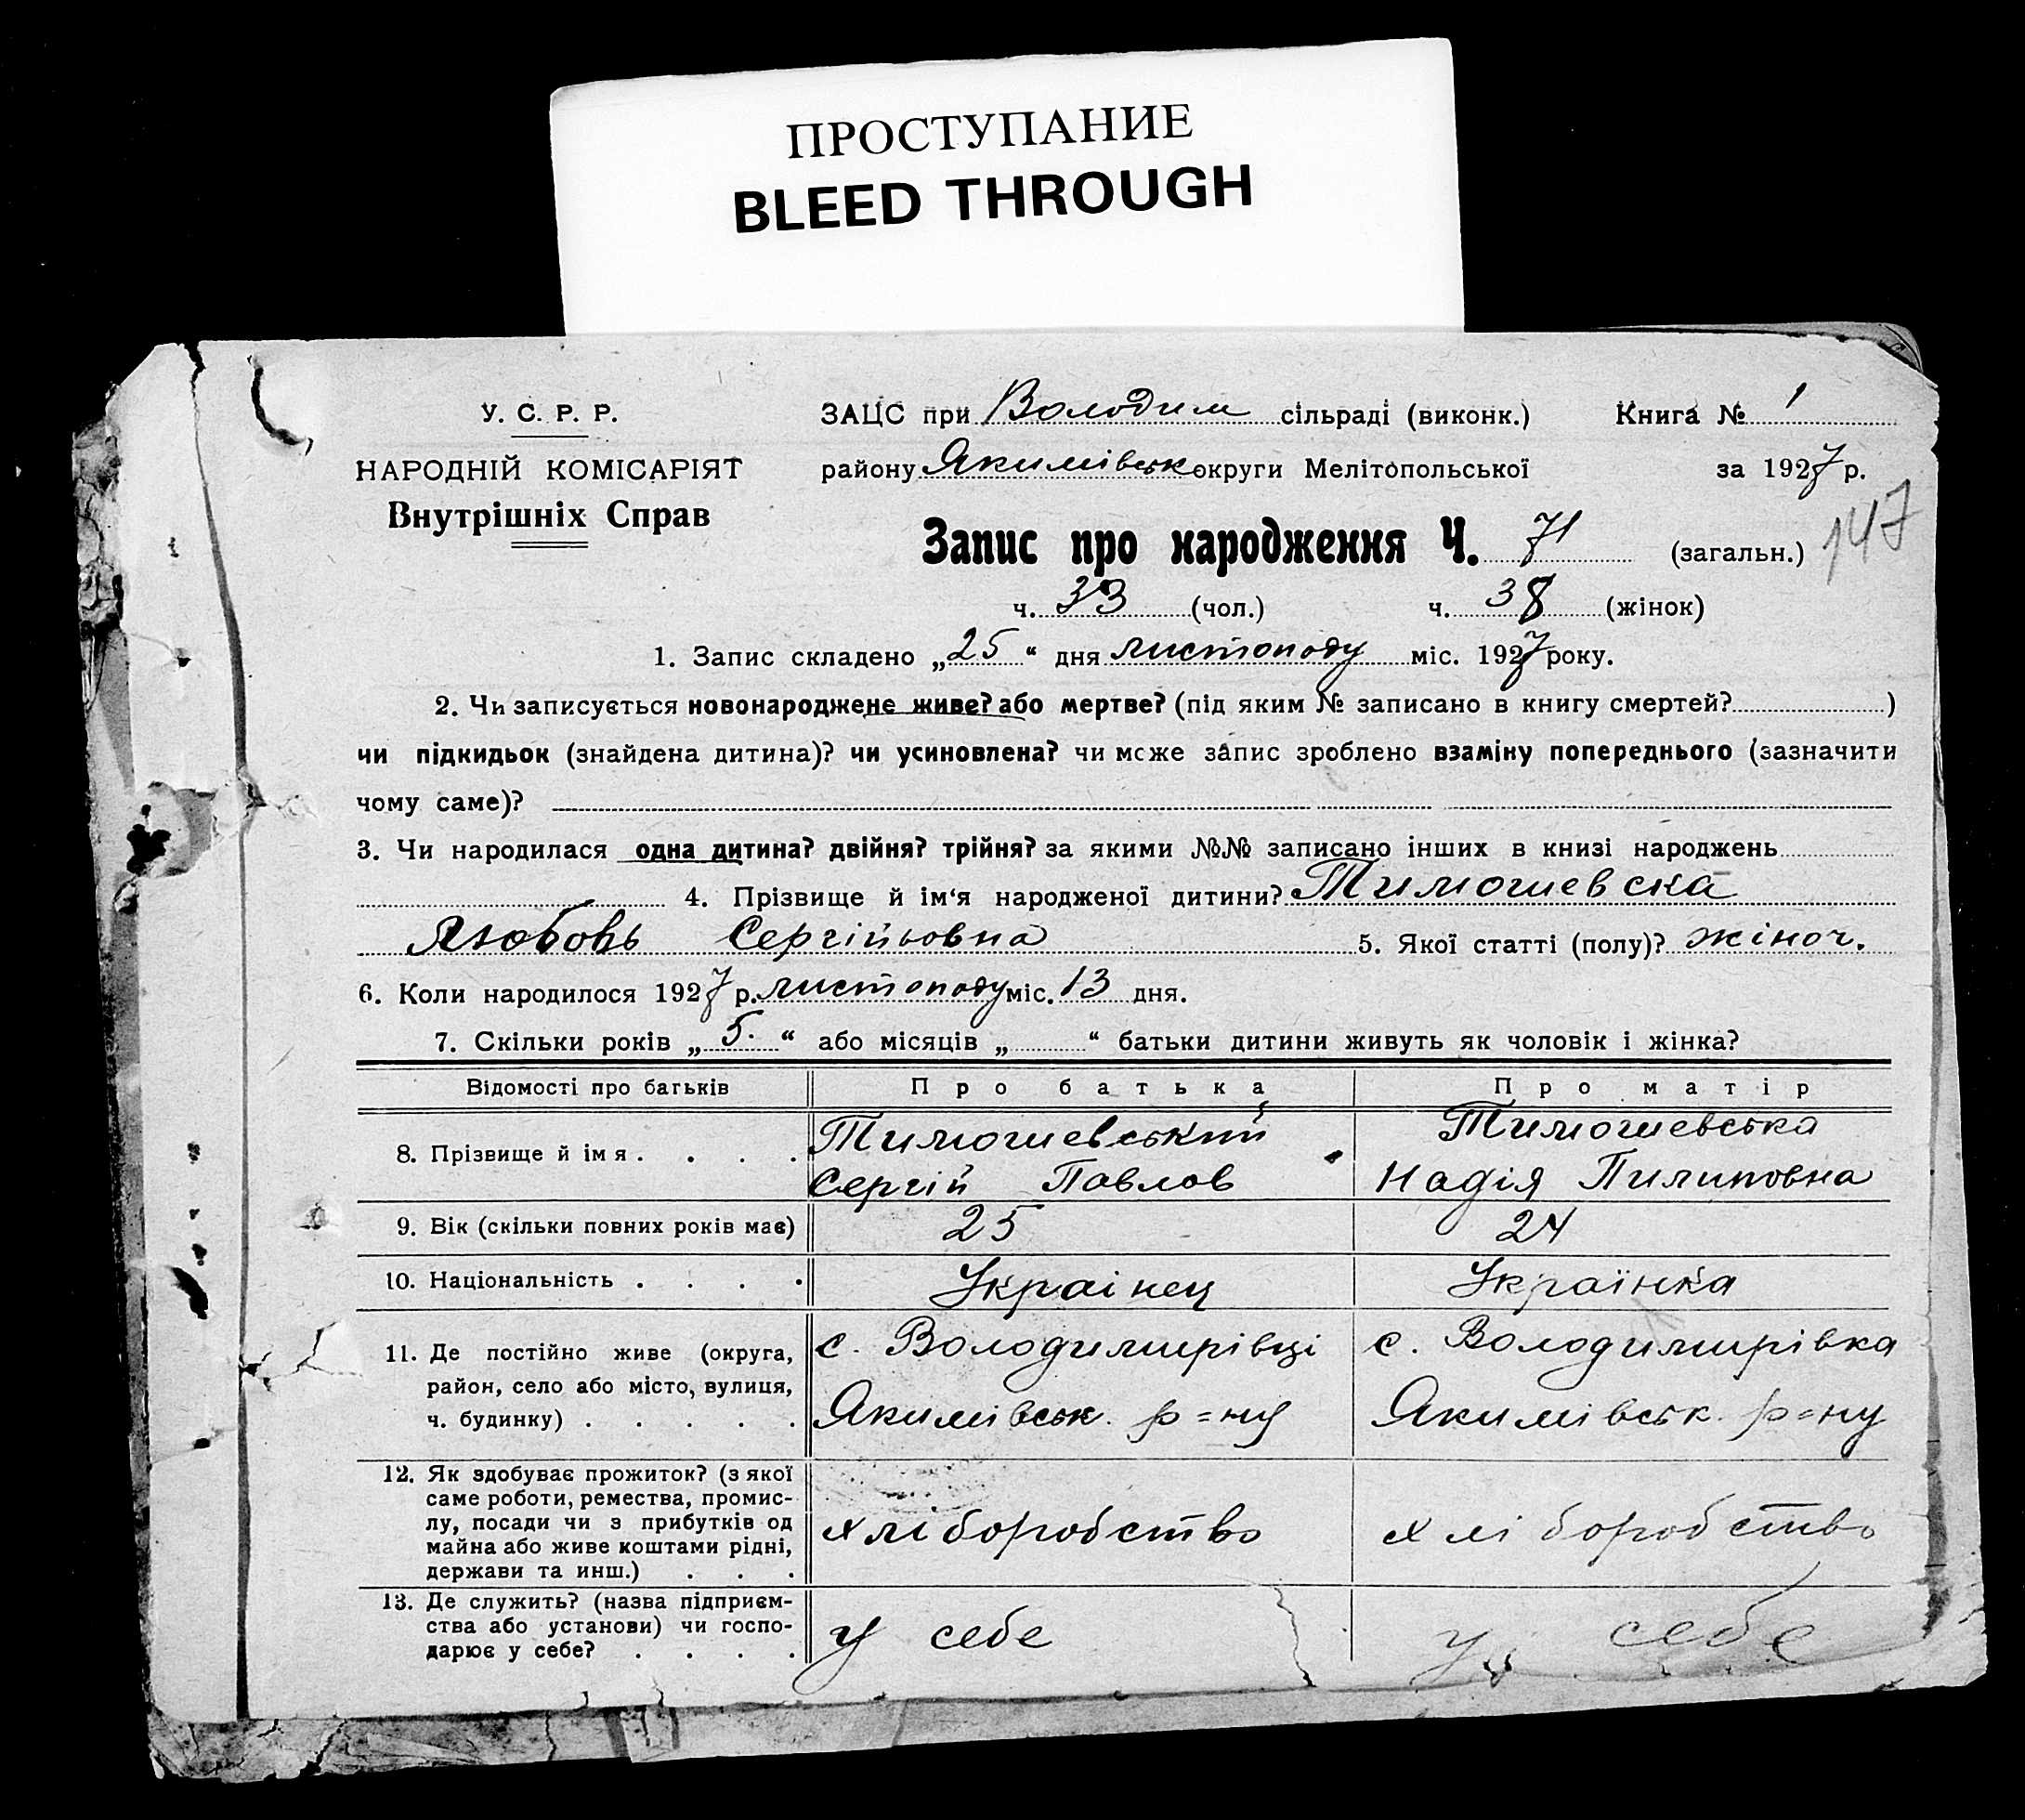 ПРОСТУПАНИЕ
BLEED THROUGH
У. С. Р. Р.
НАРОДНІЙ КОМІСАРІЯТ
Внутрішніх Справ
ЗАЦС при Володим сільраді (виконк.) Книга № 1
району Якимівськ округи Мелітопольської за 1927 р.
147
Запис про народження Ч. 71 (загальн.)
ч. 33 (чол.) ч. 38 (жінок)
1. Запис складено „25“ дня листопаду міс. 1927 року.
2. Чи записується новонароджене живе? або мертве? (під яким № записано в книгу смертей? )
чи підкидьок (знайдена дитина)? чи усиновлена? чи може запис зроблено взаміну попереднього (зазначити
чому саме)?
3. Чи народилася одна дитина? двійня? трійня? за якими №№ записано інших в книзі народжень
4. Прізвище й ім‘я народженої дитини? Тимошевска
Любовь Сергійьовна 5. Якої статті (полу)? жіноч.
6. Коли народилося 1927 р. листопаду міс. 13 дня.
7. Скільки років „5.“ або місяців „ “ батьки дитини живуть як чоловік і жінка?
Відомості про батьків Про батька Про матір
8. Прізвище й імя . . . . Тимошевський Тимошевська
Сергій Павлов Надія Пилиповна
9. Вік (скільки повних років має) 25 24
10. Національність . . . . Украінец Українка
11. Де постійно живе (округа, с. Володимирівці с. Володимирівка
район, село або місто, вулиця,
ч. будинку) . . . . . Якимівськ. р=ну Якимівськ. р=ну
12. Як здобуває прожиток? (з якої
саме роботи, ремества, промис-
лу, посади чи з прибутків од хліборобство хліборобство
майна або живе коштами рідні,
держави та инш.) . . .
13. Де служить? (назва підприєм-
ства або установи) чи госпо- у себе у себе
дарює у себе? . . . .